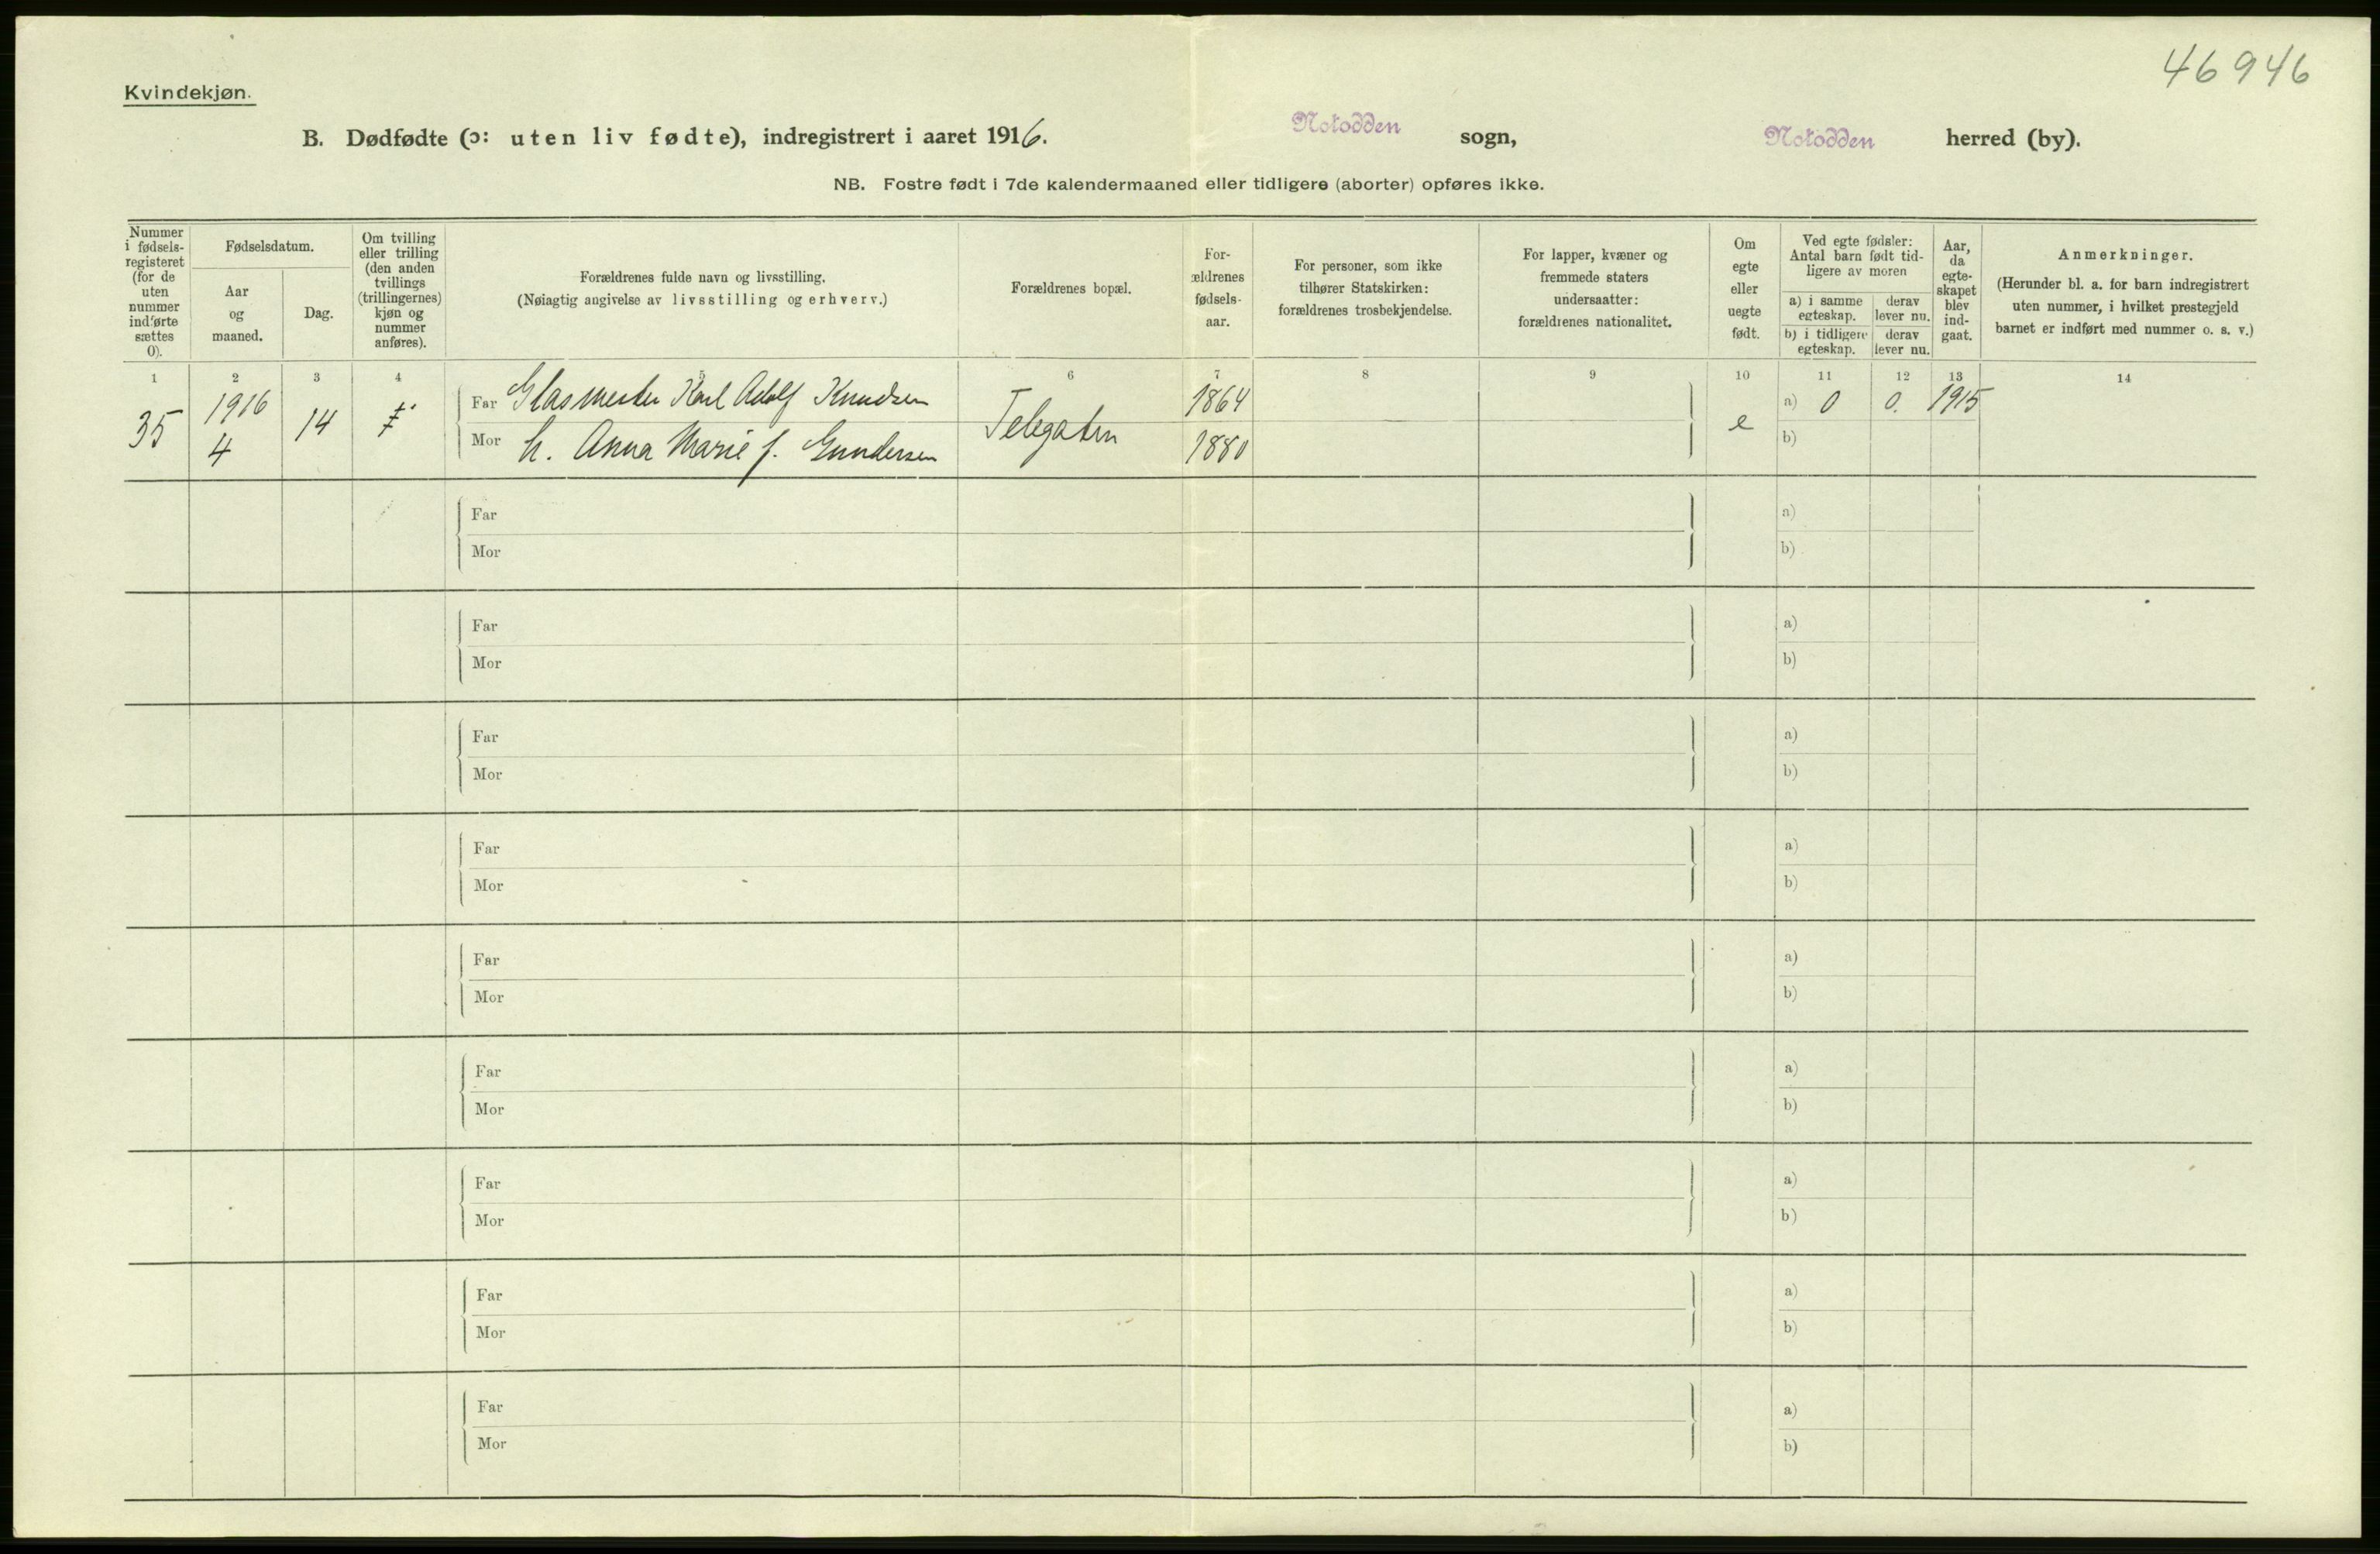 46946
Kvindekjøn.
B. Dødfødte (ɔ: uten liv fødte), indregistrert i aaret 1916. Notodden sogn, Notodden herred (by).
NB. Fostre født i 7de kalendermaaned eller tidligere (aborter) opføres ikke.
Nummer
i fødsels-
registeret
(for de
uten
nummer
indførte
sættes
0).
Fødselsdatum.
Aar
og
maaned.
Dag.
Om tvilling
eller trilling
(den anden
tvillings
(trillingernes)
kjøn og
nummer
anføres).
Forældrenes fulde navn og livsstilling.
(Nøiagtig angivelse av livsstilling og erhverv.)
Forældrenes bopæl.
For-
ældrenes
fødsels-
aar.
For personer, som ikke
tilhører Statskirken:
forældrenes trosbekjendelse.
For lapper, kvæner og
fremmede staters
undersaatter:
forældrenes nationalitet.
Om
egte
eller
uegte
født.
Ved egte fødsler:
Antal barn født tid-
ligere av moren
a) i samme
egteskap.
derav
lever nu.
b) i tidligere
egteskap.
derav
lever nu.
Aar,
da
egte-
skapet
blev
ind-
gaat.
Anmerkninger.
(Herunder bl. a. for barn indregistrert
uten nummer, i hvilket prestegjeld
barnet er indført med nummer o. s. v.)
1 2 3 4 5 6 7 8 9 10 11 12 13 14
35 1916 14 Far Glasmester Karl Adolf Knudsen Telegaten 1864 e a) 0 0. 1915
4 Mor h. Anna Marie f. Gundersen 1880 b)
Far a)
Mor b)
Far a)
Mor b)
Far a)
Mor b)
Far a)
Mor b)
Far a)
Mor b)
Far a)
Mor b)
Far a)
Mor b)
Far a)
Mor b)
Far a)
Mor b)